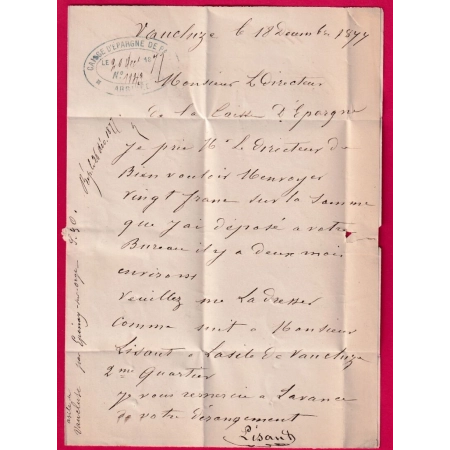 Vaucluze le 18 Decembre 1877
CAISSE D'EPARGNE DE
LE
No
ARRIVÉE
Monsieur L Directeur
de la Caisse D'Epargne
je prie Mr le directeur de
Bien vouloir M envoyer
Vingt franc sur la Somme
que j'ai déposé a votre
Bureau il y a deux mois
environs
Veuillez me Ladresser
comme suit a Monsieur
Lisant a Lasile de Vaucluze
2me Quartier
je vous remercie a Lavance
de votre dérangement
Lisant
asile a
Vaucluse par Epinay-sur-orge S. & O.
Rép. le 26 déc. 1877